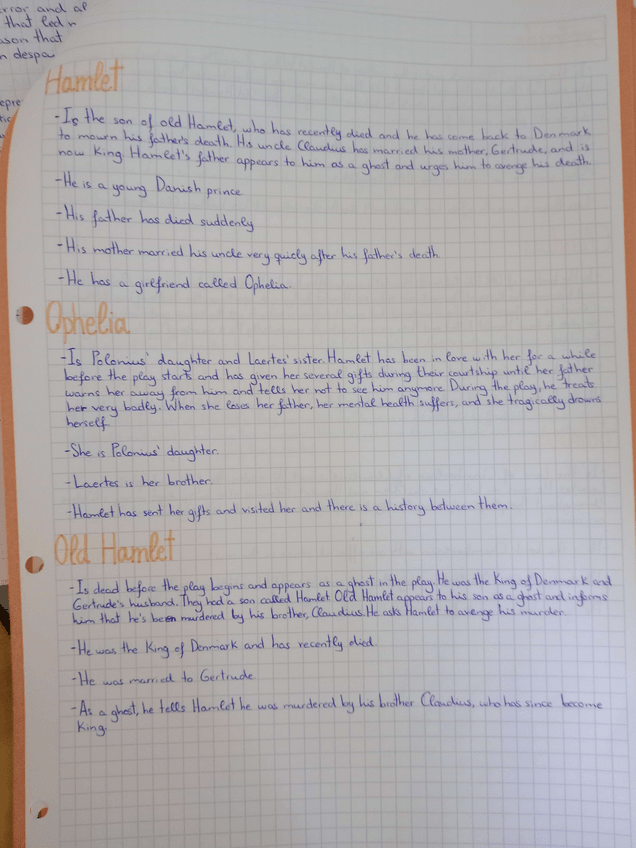 error and al
that led
son that
n despa
epre
Hamlet
-Is the son of old Hamlet, who has recently died and he has come back to Denmark
to mourn his father's death. His uncle Claudius has married his mother, Gertrude, and is
now King. Hamlet's father appears to him as a ghost and urges him to avenge his death.
-He is a young Danish prince
-His father has died suddenly
-His mother married his uncle very quicly after his father's death
-He has a girlfriend called Ophelia.
Ophelia
-Is Polonius' daughter and Laertes' sister. Hamlet has been in love with her for a while
before the play starts and has given her several gifts during their courtship until her father
warns her away from him and tells her not to see him anymore. During the play, he treats
her very badly. When she loses her father, her mental health suffers, and she tragically drowns
herself.
-She is Polonius' daughter.
-Laertes is her brother.
-Hamlet has sent her gifts and visited her and there is a history between them.
Old Hamlet
-Is dead before the play begins and appears as a ghost in the play. He was the King of Denmark and
Gertrude's husband. They had a son called Hamlet. Old Hamlet appears to his son as a ghost and informs
him that he's been murdered by his brother, Claudius. He asks Hamlet to avenge his murder.
-He was the King of Denmark and has recently died.
-He was married to Gertrude.
-As a ghost, he tells Hamlet he was murdered by his brother Claudius, who has since become
King.